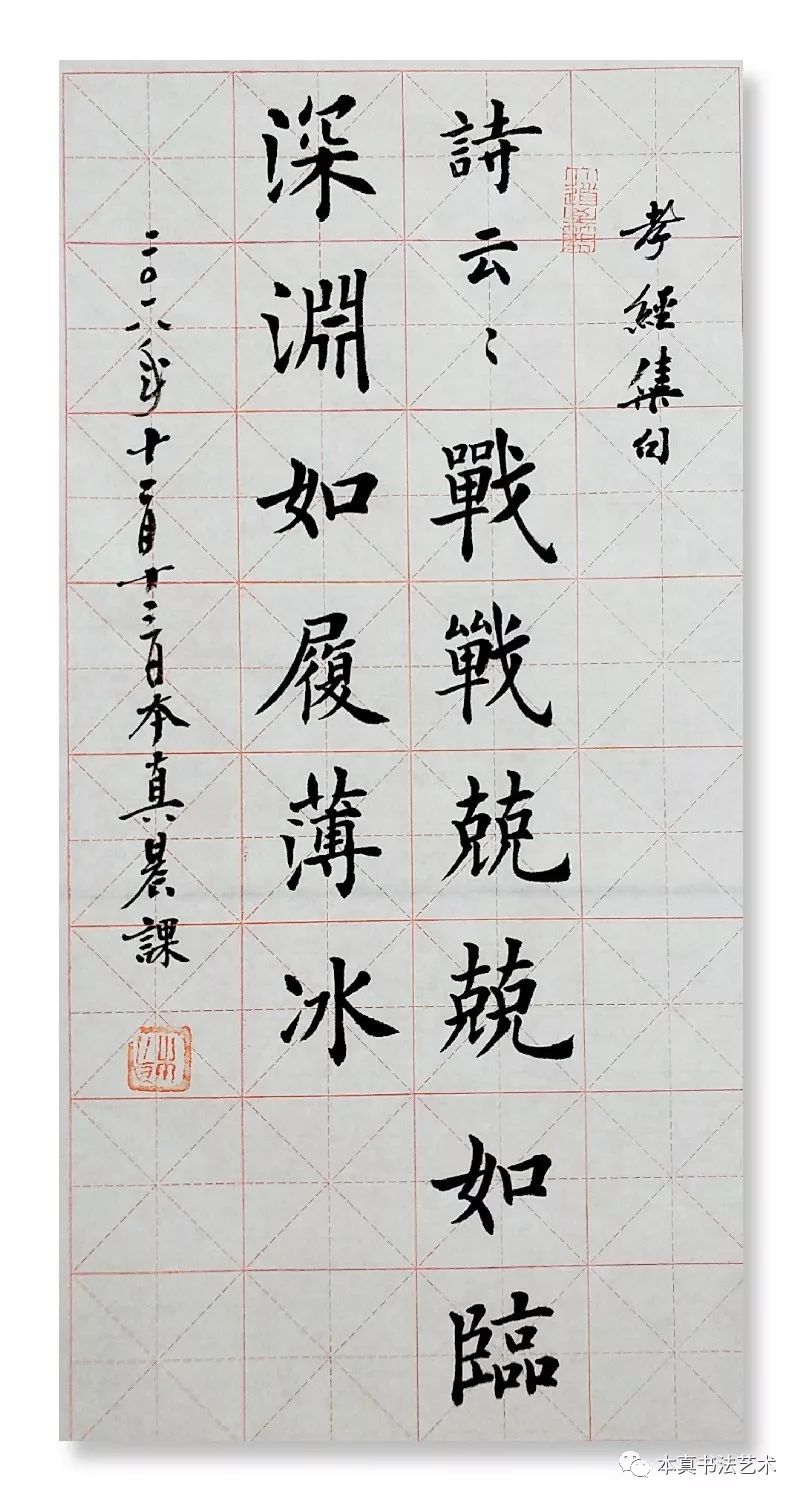 孝經集句
詩云〻戰戰兢兢如臨
深淵如履薄冰
二〇一八年十月三日本真晨課
本真书法艺术